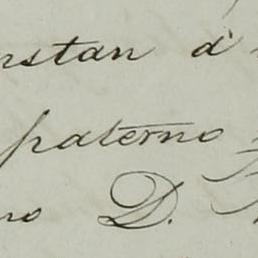 nstan á
paterno
no D.